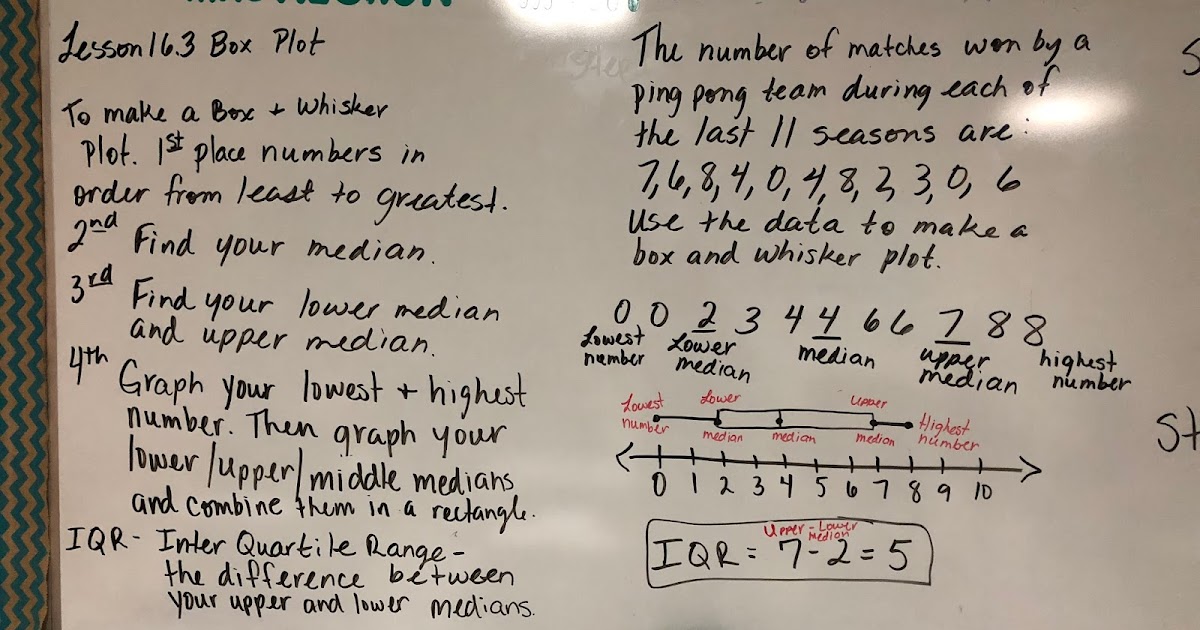 Lesson 16.3 Box Plot
To make a Box + Whisker
Plot. 1st place numbers in
order from least to greatest.
2nd Find your median.
3rd Find your lower median
and upper median.
4th Graph your lowest + highest
number. Then graph your
lower/upper/middle medians
and combine them in a rectangle.
IQR - Inter Quartile Range -
the difference between
your upper and lower medians.
The number of matches won by a
ping pong team during each of
the last 11 seasons are:
7, 6, 8, 4, 0, 4, 8, 2, 3, 0, 6
Use the data to make a
box and whisker plot.
0 0 2 3 4 4 6 6 7 8 8
Lowest number
Lower median
median
upper median
highest number
Lowest number
Lower median
median
upper median
Highest number
0 1 2 3 4 5 6 7 8 9 10
Upper - Lower
median
IQR = 7 - 2 = 5